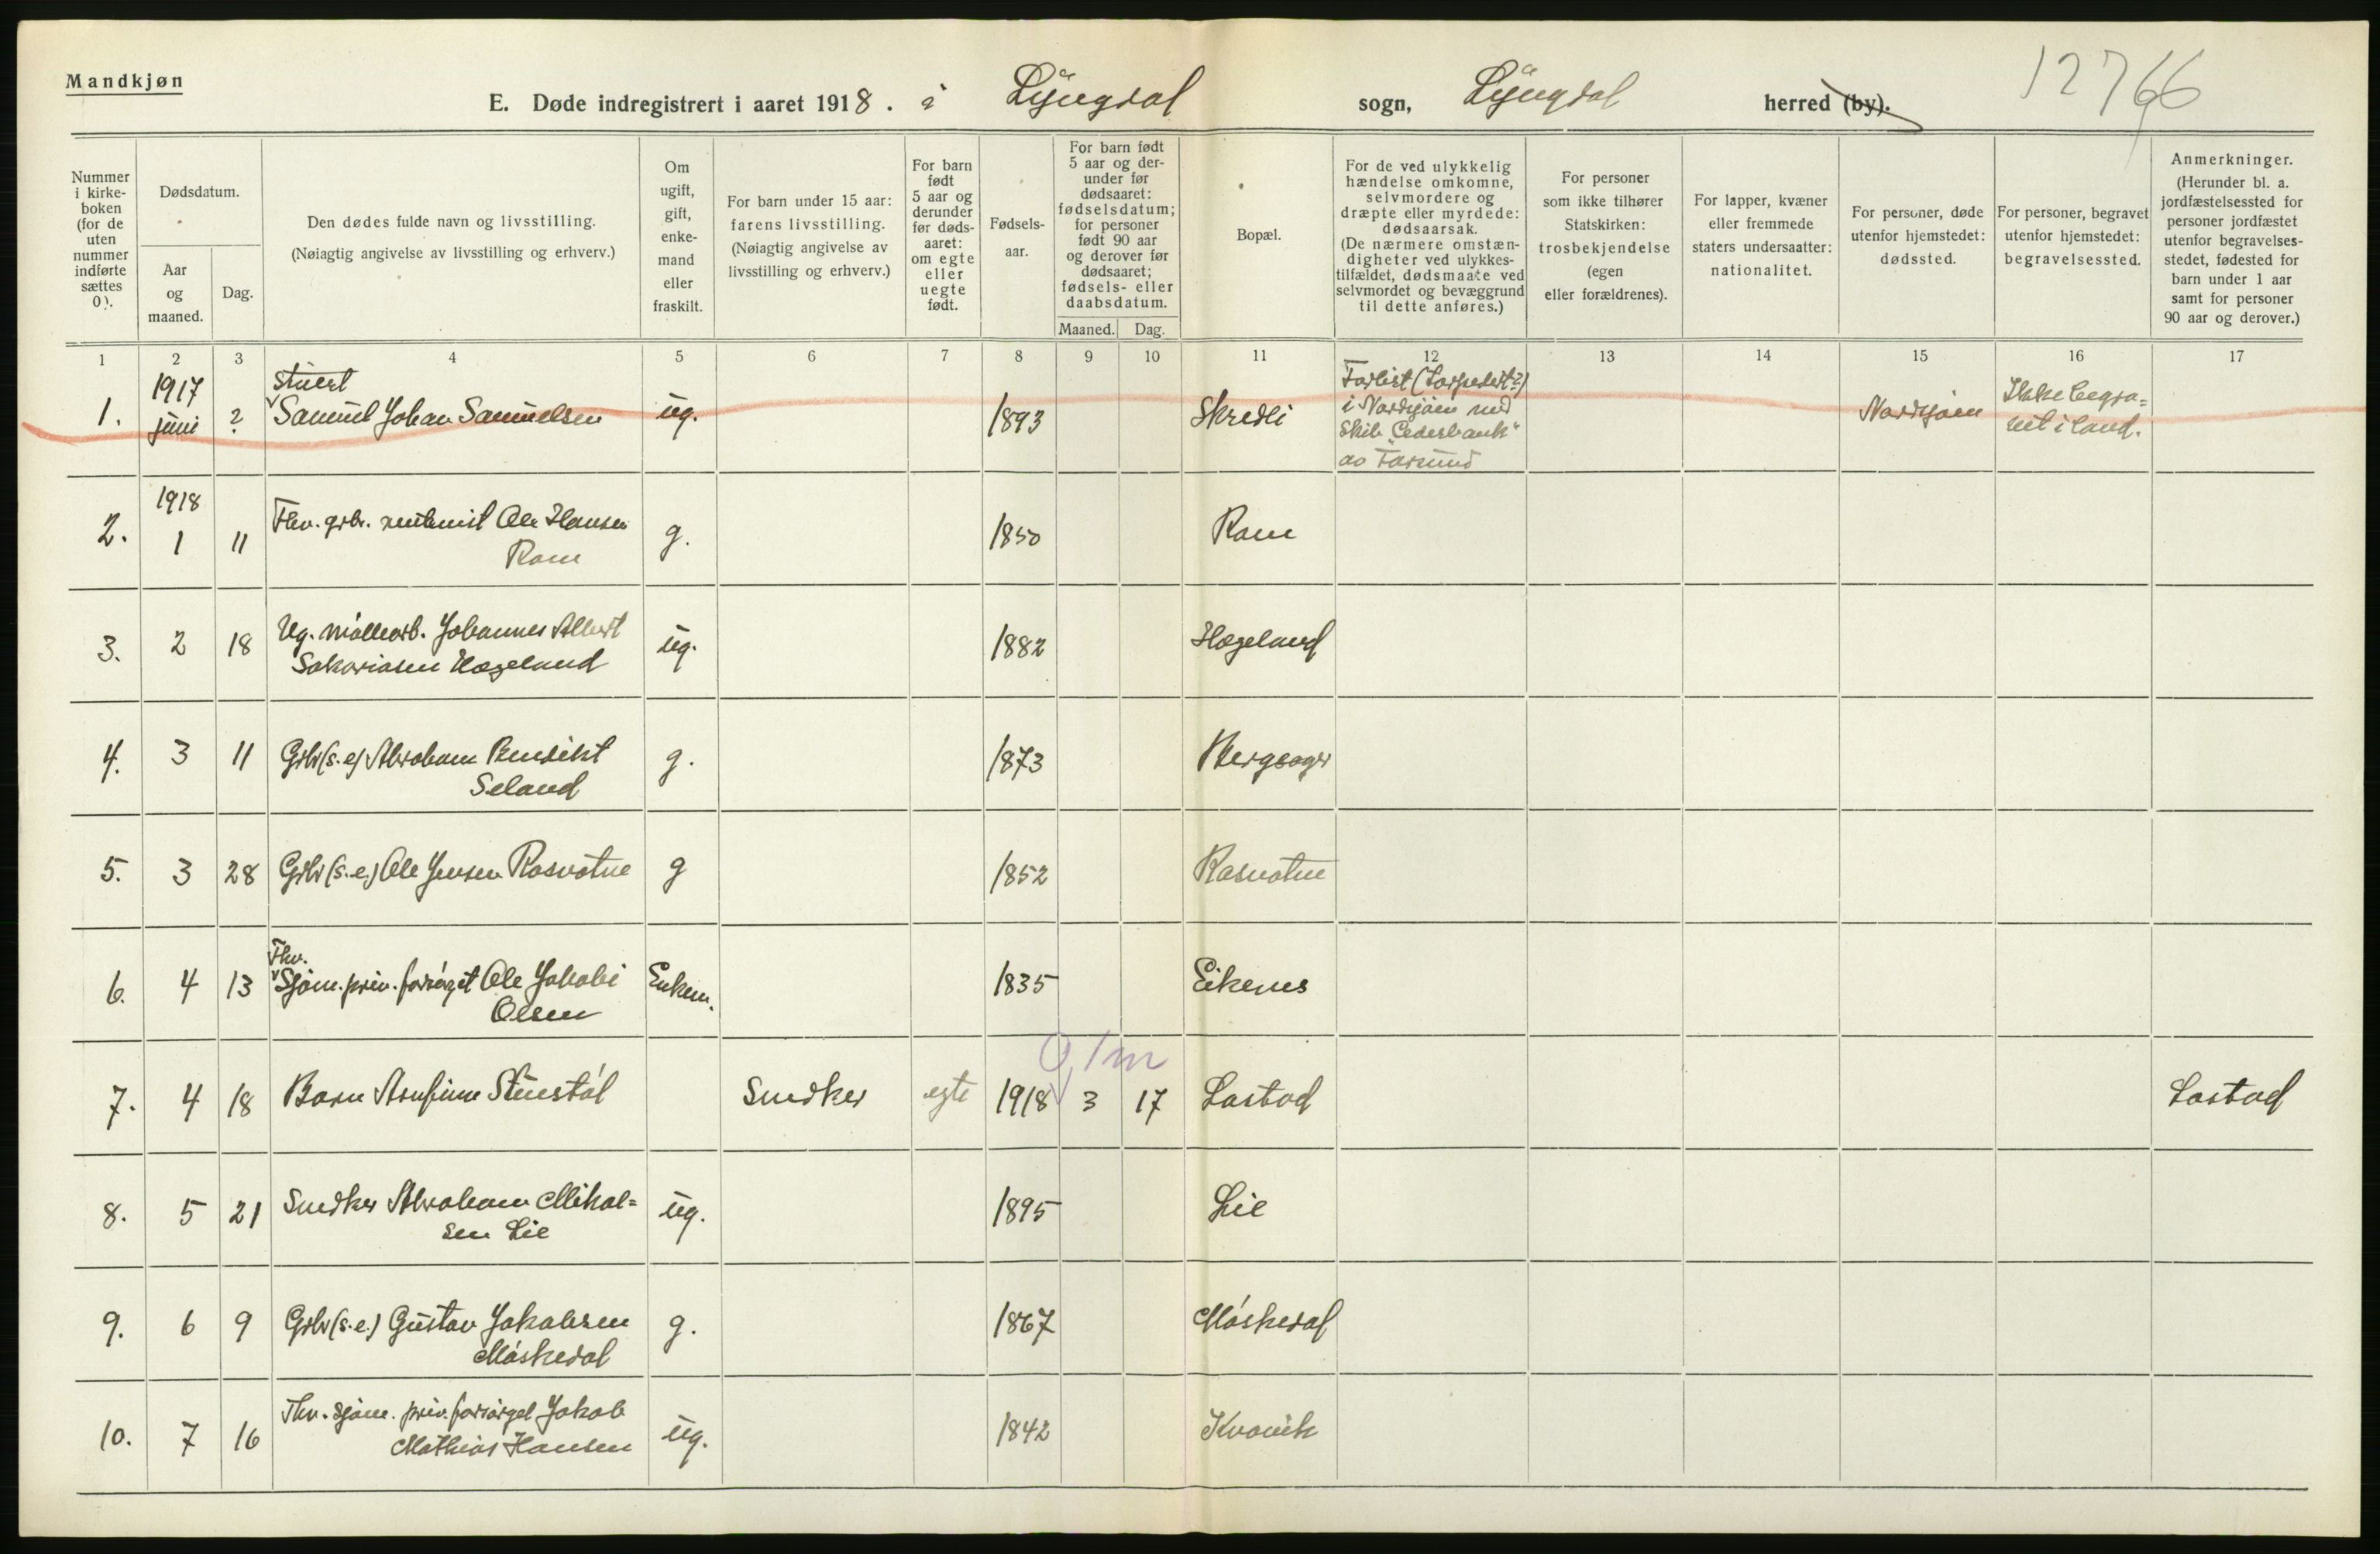 Mandkjøn
E. Døde indregistrert i aaret 1918. i Lyngdal sogn, Lyngdal herred (by).
12766
Nummer i kirkeboken (for de uten nummer indførte sættes 0).
Dødsdatum.
Aar og maaned.
Dag.
Den dødes fulde navn og livsstilling.
(Nøiagtig angivelse av livsstilling og erhverv.)
Om ugift, gift, enkemand eller fraskilt.
For barn under 15 aar: farens livsstilling.
(Nøiagtig angivelse av livsstilling og erhverv.)
For barn født 5 aar og derunder før dødsaaret: om egte eller uegte født.
Fødselsaar.
For barn født 5 aar og derunder før dødsaaret: fødselsdatum; for personer født 90 aar og derover før dødsaaret; fødsels- eller daabsdatum.
Maaned. Dag.
Bopæl.
For de ved ulykkelig hændelse omkomne, selvmordere og dræpte eller myrdede: dødsaarsak. (De nærmere omstændigheter ved ulykkestilfældet, dødsmaate ved selvmordet og bevæggrund til dette anføres.)
For personer som ikke tilhører Statskirken: trosbekjendelse (egen eller forældrenes).
For lapper, kvæner eller fremmede staters undersaatter: nationalitet.
For personer, døde utenfor hjemstedet: dødssted.
For personer, begravet utenfor hjemstedet: begravelsessted.
Anmerkninger. (Herunder bl. a. jordfæstelsessted for personer jordfæstet utenfor begravelsesstedet, fødested for barn under 1 aar samt for personer 90 aar og derover.)
1 2 3 4 5 6 7 8 9 10 11 12 13 14 15 16 17
1. 1917 juni ? Stuert Samuel Johan Samuelsen ug. 1893 Skredli Forlist (Torpedert?) i Nordsjøen med Skib "Cederbank" av Farsund Nordsjøen Ikke begravet i land.
2. 1918 1 11 Fhv. grbr. Ole Hansen Rom g. 1850 Rom
3. 2 18 Ug. møllearb. Johannes Albert Sakariasen Hægeland ug. 1882 Hægeland
4. 3 11 Grbr (s.e) Abraham Bendikt Seland g. 1873 Bergsager
5. 3 28 Grbr (s.e.) Ole Jensen Rosvatne g 1852 Rosvatne
6. 4 13 Fhv. Sjøm. priv. forsørget Ole Jakobi Olsen Enkem. 1835 Eikenes
7. 4 18 Barn Arnfinn Stuestøl Snedker egte 1918 3 17 Lastad Lastad
0 1 m
8. 5 21 Snedker Abraham Mikalsen Lie ug. 1895 Lie
9. 6 9 Grbr (s.e.) Gustav Jakobsen Møskedal g. 1867 Møskedal
10. 7 16 Fhv. sjøm. priv. forsørget Jakob Mathias Hansen ug. 1842 Kvavik